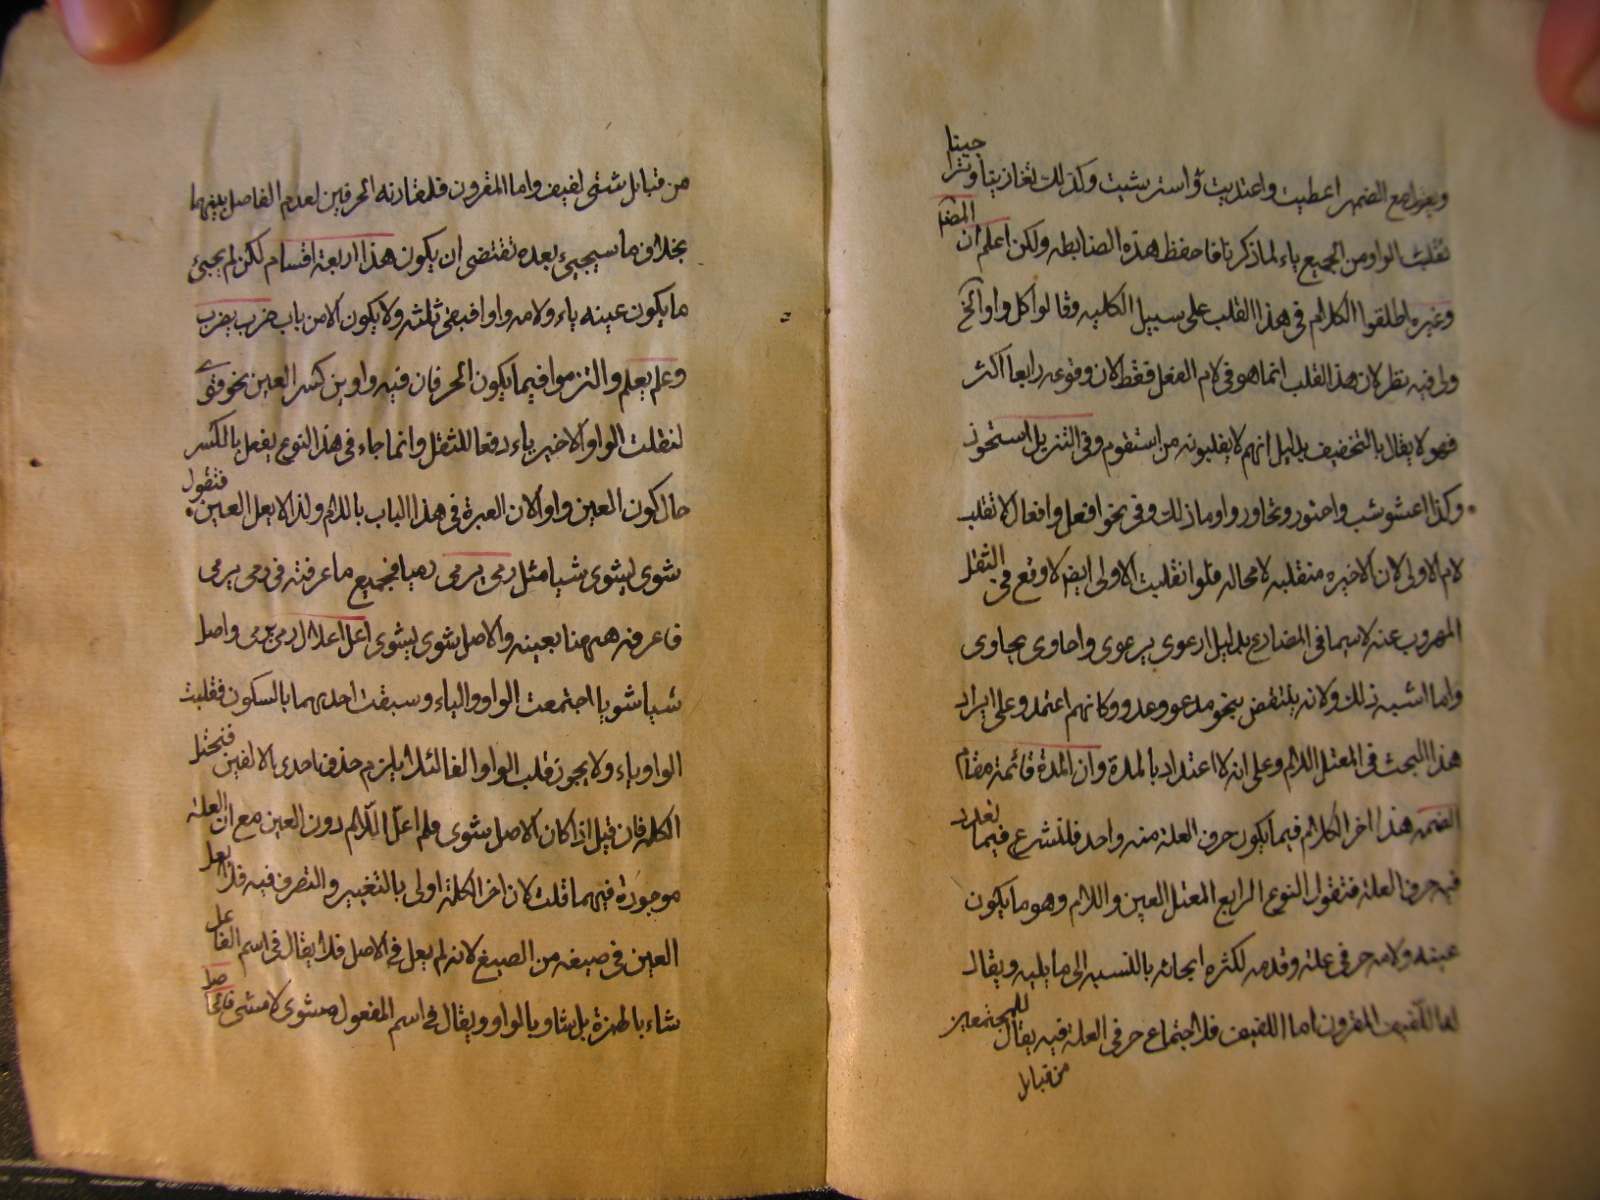 ويقول مع الضمير اعطيت واعتديت واسترشيت وكذلك تغازينا وتراجينا
تقلب الواو من الجميع ياء لما ذكرنا فاحفظ هذه الضابطه ولكن اعلم ان المصنف
وغيره اطلقوا الكلام في هذا القلب على سبيل الكليه وقالوا كل واو الخ
ولى فيه نظر لان هذا القلب انما هو في لام الفعل فقط لان وقوعه رابعا اكثر
فهو لا يقال بالتخفيف بدليل انهم لا يقلبونه من استقوم وفي التنزيل استحوذ
وكذا اعشوشب واحتور وتحاور وما ذلك وفي نحو افعل وافعال لا تقلب
لام الاولى لان الاخيره منقلبه لا محاله فلو انقلبت الاولى ايضا لاوقع في الثقل
المهروب عنه لاسيما في المضارع بدليل ارعوى يرعوى واحاوى يحاوى
وما اشبه ذلك ولانه ينتقض بنحو مدعو وعدو وكانهم اعتمدو على ايراد
هذا البحث في المعتل اللام وعلى انه لا اعتداد بالمدة وان المدة قائمة مقام
الضمه هذا اخر الكلام فيما يكون حرف العلة منه واحد فلنشرع فيما تعدد
فيه حرف العلة فنقول النوع الرابع المعتل العين واللام وهو ما يكون
عينه ولامه حرفي علة وقدمه لكثره ابحاثه بالنسبه الى ما يليه ويقال
لها اللفيف المقرون اما اللفيف فلاجتماع حرفي العلة فيه يقال للمجتمعين
من قبايل
من قبايل شتى لفيف واما المقرون فلمقارنه الحرفين لعدم الفاصل بينهما
بخلاف ما سيجيئ بعده تقتضى ان يكون هذا اربعة اقسام لكن لم يجيئ
ما يكون عينه ياء ولامه واوا فبقى ثلثه ولا يكون الا من باب ضرب يضرب
وعلم يعلم والتزموا فيما يكون الحرفان فيه واوين كسر العين نحو قوى
لنقلت الواو الاخير ياء دفعا للثقل وانما جاء في هذا النوع يفعل بالكسر
حال كون العين واو الان العبرة في هذا الباب باللام ولذا لا يعل العين فتقول
شوى يشوى شيا مثل رمى يرمى رميا فجميع ما عرفته في رمى يرمى
فاعرفه ههنا بعينه والاصل شوى يشوى اعل اعلال رمى يرمى واصل
شيا شويا اجتمعت الواو والياء وسبقت احديهما بالسكون فقلبت
الواو ياء ولا يجوز قلب الواو الفا لئلا يلزم حذف احدى الالفين فتختل
الكلمة فان قيل اذا كان الاصل شوى فلم اعل اللام دون العين مع ان العلة
موجودة فيهما قلت لان اخر الكلمة اولى بالتغيير والتصرف فيه فلا يعل
العين في صيغه من الصيغ لانه لم يعل في الاصل فلا يقال في اسم الفاعل
شاء بالهمزة بل شاو بالواو ويقال في اسم المفعول مشوى لا مشى